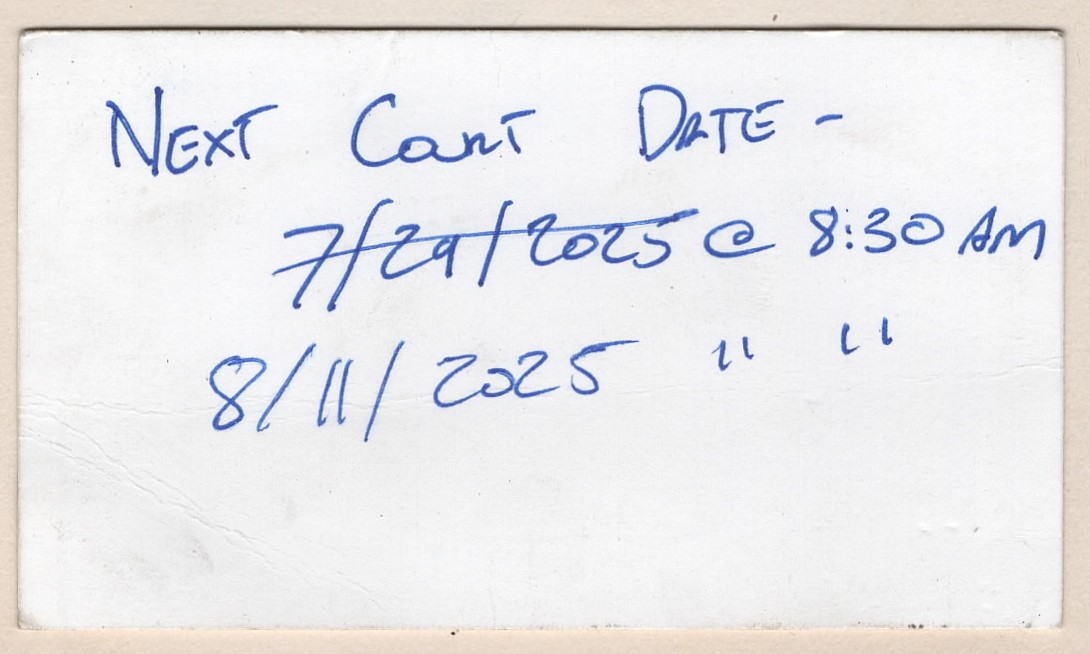 NEXT COURT DATE -
7/29/2025 @ 8:30 AM
8/11/2025 " "